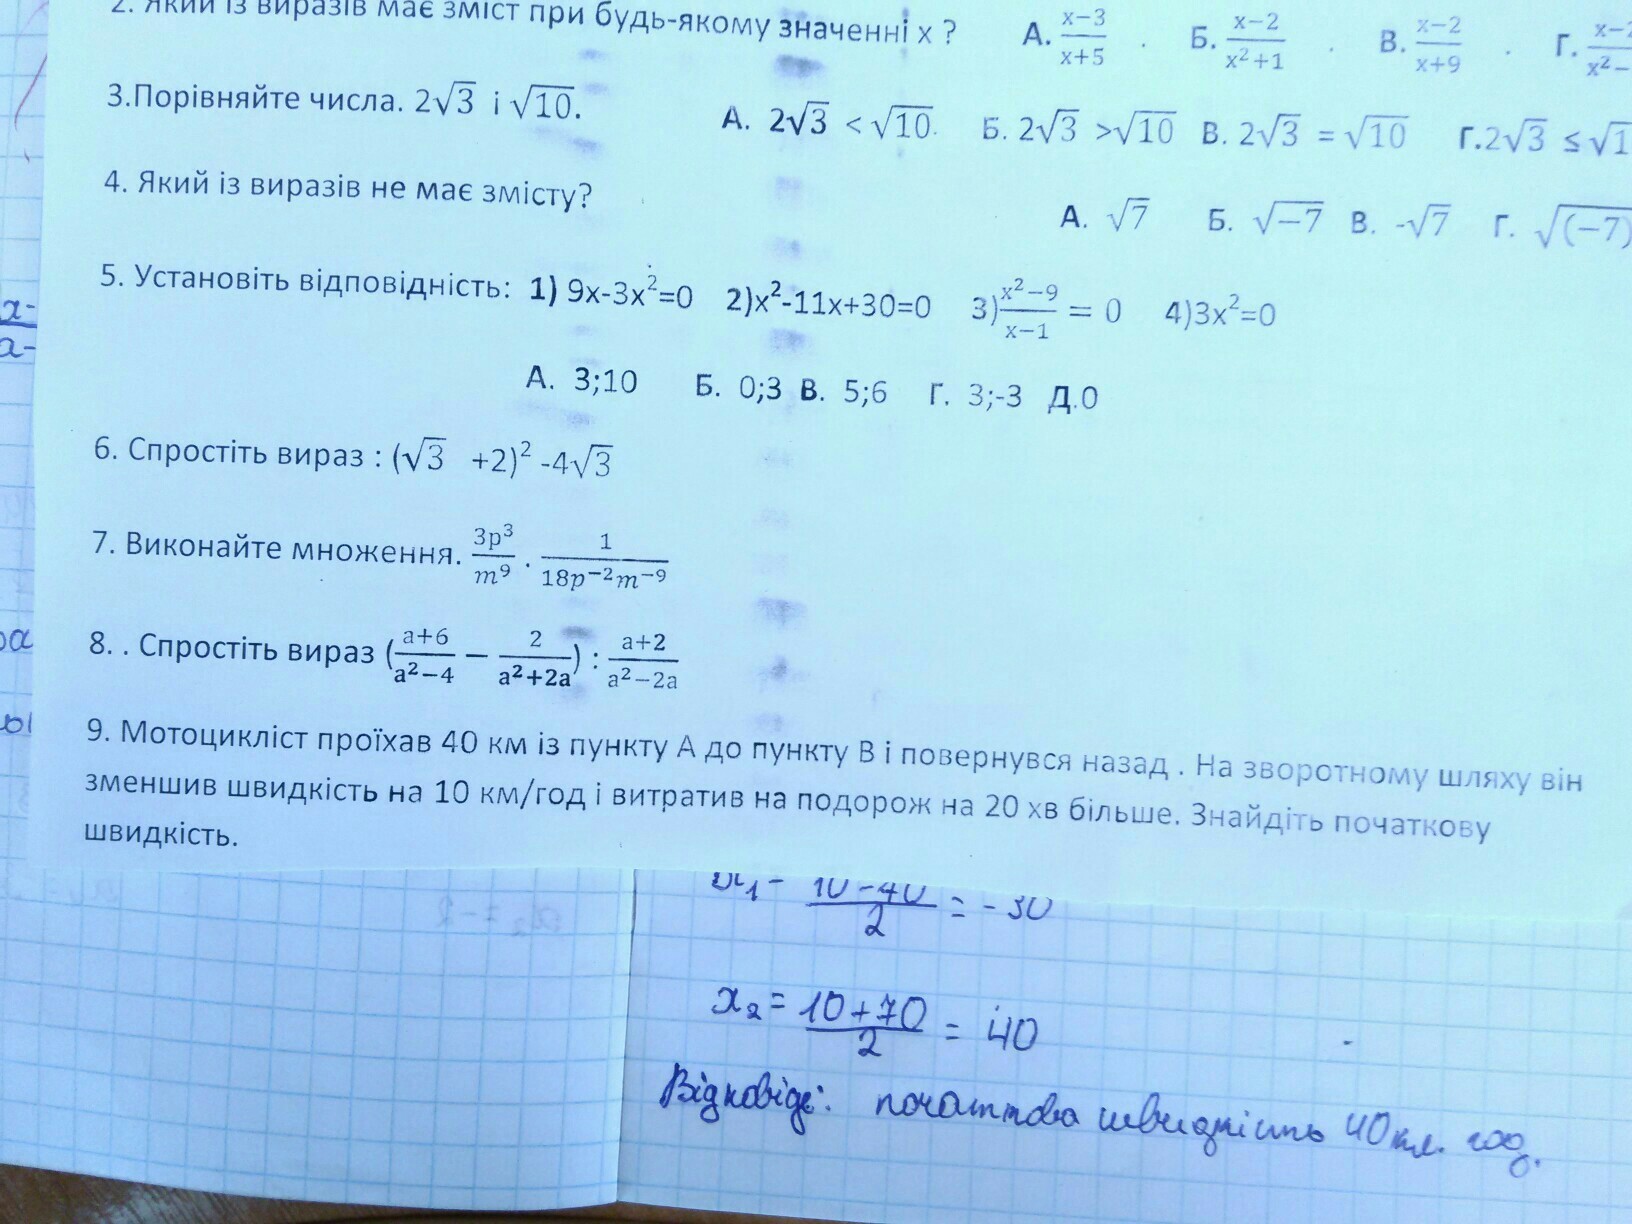 2. Який із виразів має зміст при будь-якому значенні х ? А. x−3/x+5 . Б. x−2/x²+1 . В. x−2/x+9 . Г.
3.Порівняйте числа. 2√3 і √10. А. 2√3 < √10. Б. 2√3 >√10 В. 2√3 = √10 Г.2√3 ≤
4. Який із виразів не має змісту? А. √7 Б. √−7 В. -√7 Г. √(−7)
5. Установіть відповідність: 1) 9x-3x²=0 2)x²-11x+30=0 3)x²−9/x−1 = 0 4)3x²=0
А. 3;10 Б. 0;3 В. 5;6 Г. 3;-3 Д.0
6. Спростіть вираз : (√3 +2)² -4√3
7. Виконайте множення. 3p³/m⁹ · 1/18p⁻²m⁻⁹
8. . Спростіть вираз (a+6/a²−4 − 2/a²+2a) : a+2/a²−2a
9. Мотоцикліст проїхав 40 км із пункту А до пункту В і повернувся назад . На зворотному шляху він
зменшив швидкість на 10 км/год і витратив на подорож на 20 хв більше. Знайдіть початкову
швидкість.
= -30
x₂ = 10+70/2 = 40
Відповідь: початкова швидкість 40 км. год.